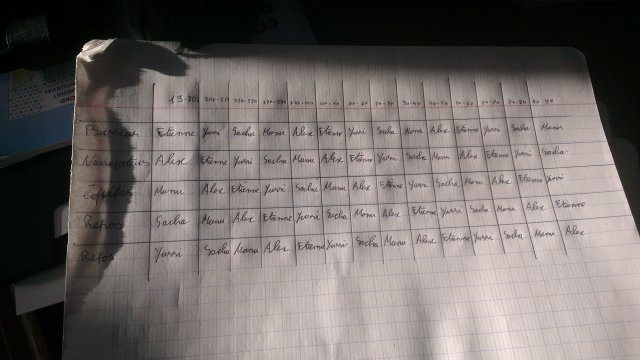 19-20h
Barreur Etienne Yurri Sacha Manu Alex Etienne Yurri Sacha Manu Alex Etienne Yurri Sacha Manu
Navigateur Alex Etienne Yurri Sacha Manu Alex Etienne Yurri Sacha Manu Alex Etienne Yurri Sacha
Équipier Manu Alex Etienne Yurri Sacha Manu Alex Etienne Yurri Sacha Manu Alex Etienne Yurri
Repos Sacha Manu Alex Etienne Yurri Sacha Manu Alex Etienne Yurri Sacha Manu Alex Etienne
Repos Yurri Sacha Manu Alex Etienne Yurri Sacha Manu Alex Etienne Yurri Sacha Manu Alex